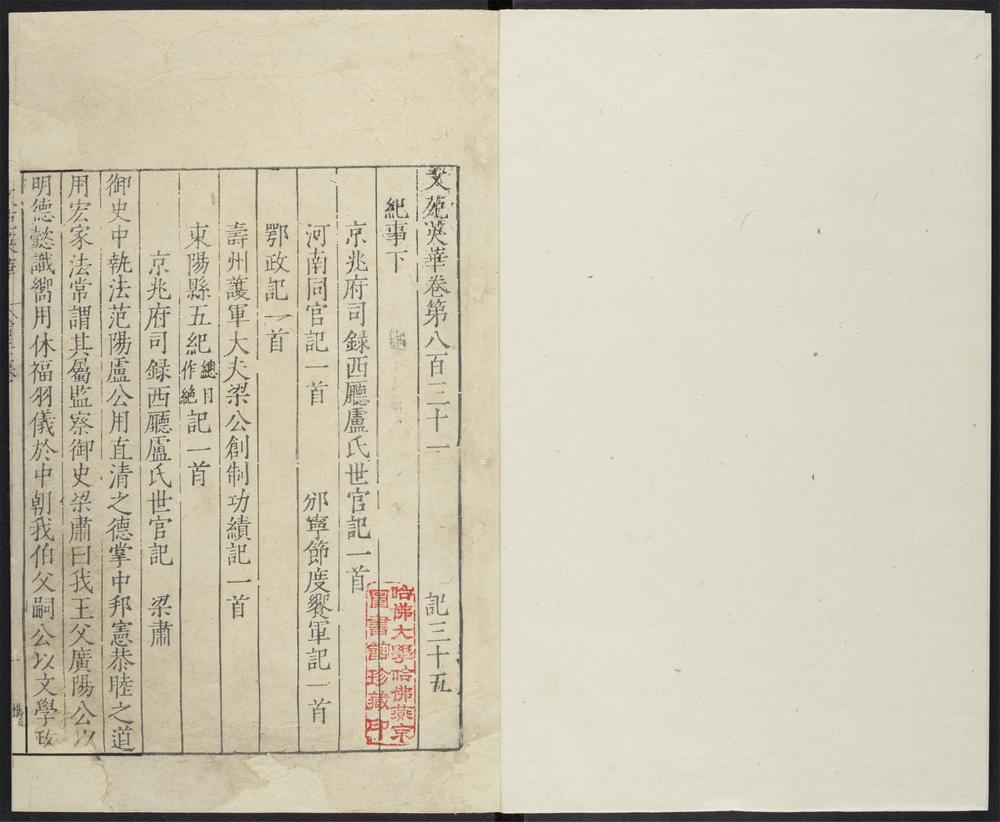 文苑英華卷第八百三十一　記三十五
紀事下
京兆府司録西廳盧氏世官記一首
河南同官記一首　邠寧節度饗軍記一首
鄂政記一首
壽州護軍大夫梁公創制功績記一首
東陽縣五紀總目作絶記一首
京兆府司録西廳盧氏世官記　梁肅
御史中執法范陽盧公用直清之德掌中邦憲恭睦之道
用宏家法常謂其屬監察御史梁肅曰我王父廣陽公以
明德懿識嚮用休福羽儀於中朝我伯父嗣公以文學政
哈佛大學哈佛燕京
圖書館珍藏印